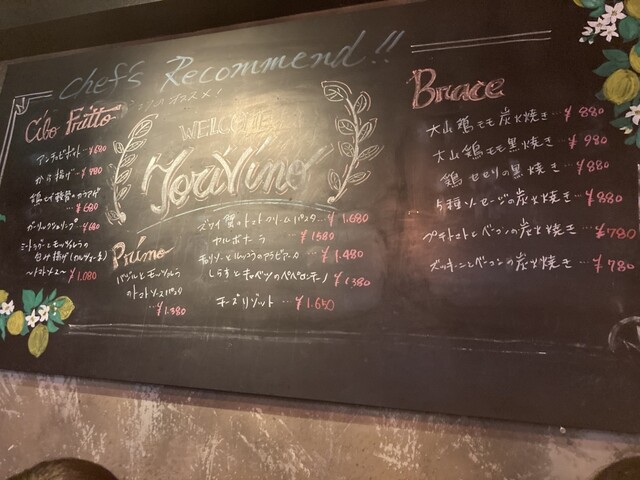 chef's Recommend!!
オススメ!
Cibo Fritto
アンチョビポテト … ¥680
から揚げ … ¥980
… ¥680
ガーリックシュリンプ … ¥680
ミートソースとモッツァレラの
包み揚げ
～トマトソース～ ¥1.080
WELCOME
ToriVino
Primo
バジルとモッツァレラ
のトマトソースパスタ
… ¥1.380
ズワイ蟹のトマトクリームパスタ … ¥1.680
カルボナーラ … ¥1580
のアラビアータ … ¥1.480
しらすとキャベツのペペロンチーノ ¥1380
チーズリゾット … ¥1.650
Brace
大山鶏モモ炭火焼き … ¥880
大山鶏モモ黒焼き … ¥980
鶏セセリの黒焼き … ¥880
5種ソーセージの炭火焼き … ¥880
プチトマトとベーコンの炭火焼き … ¥780
ズッキーニとベーコンの炭火焼き … ¥780